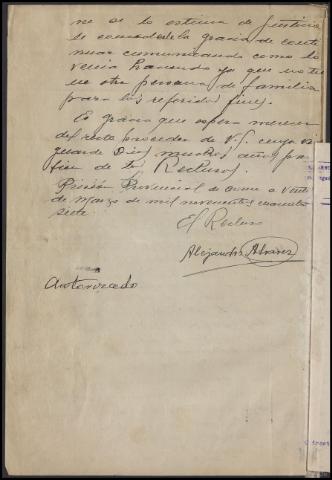 ne de lo estima de Justicia
se conceda la gracia de conti
nuar comunicando como lo
venia haciendo ya que no tie
ne otra persona de familia
para los referidos fines.
Es gracia que espera merecer
del recto proceder de V.S. cuya va
guarde Dios muchos años para
bien de los Reclusos.
Prisión Provincial de a Veinti
de Marzo de mil novecientos cuarenta
siete
El Recluso
Alejandro Alvarez
Autorizado